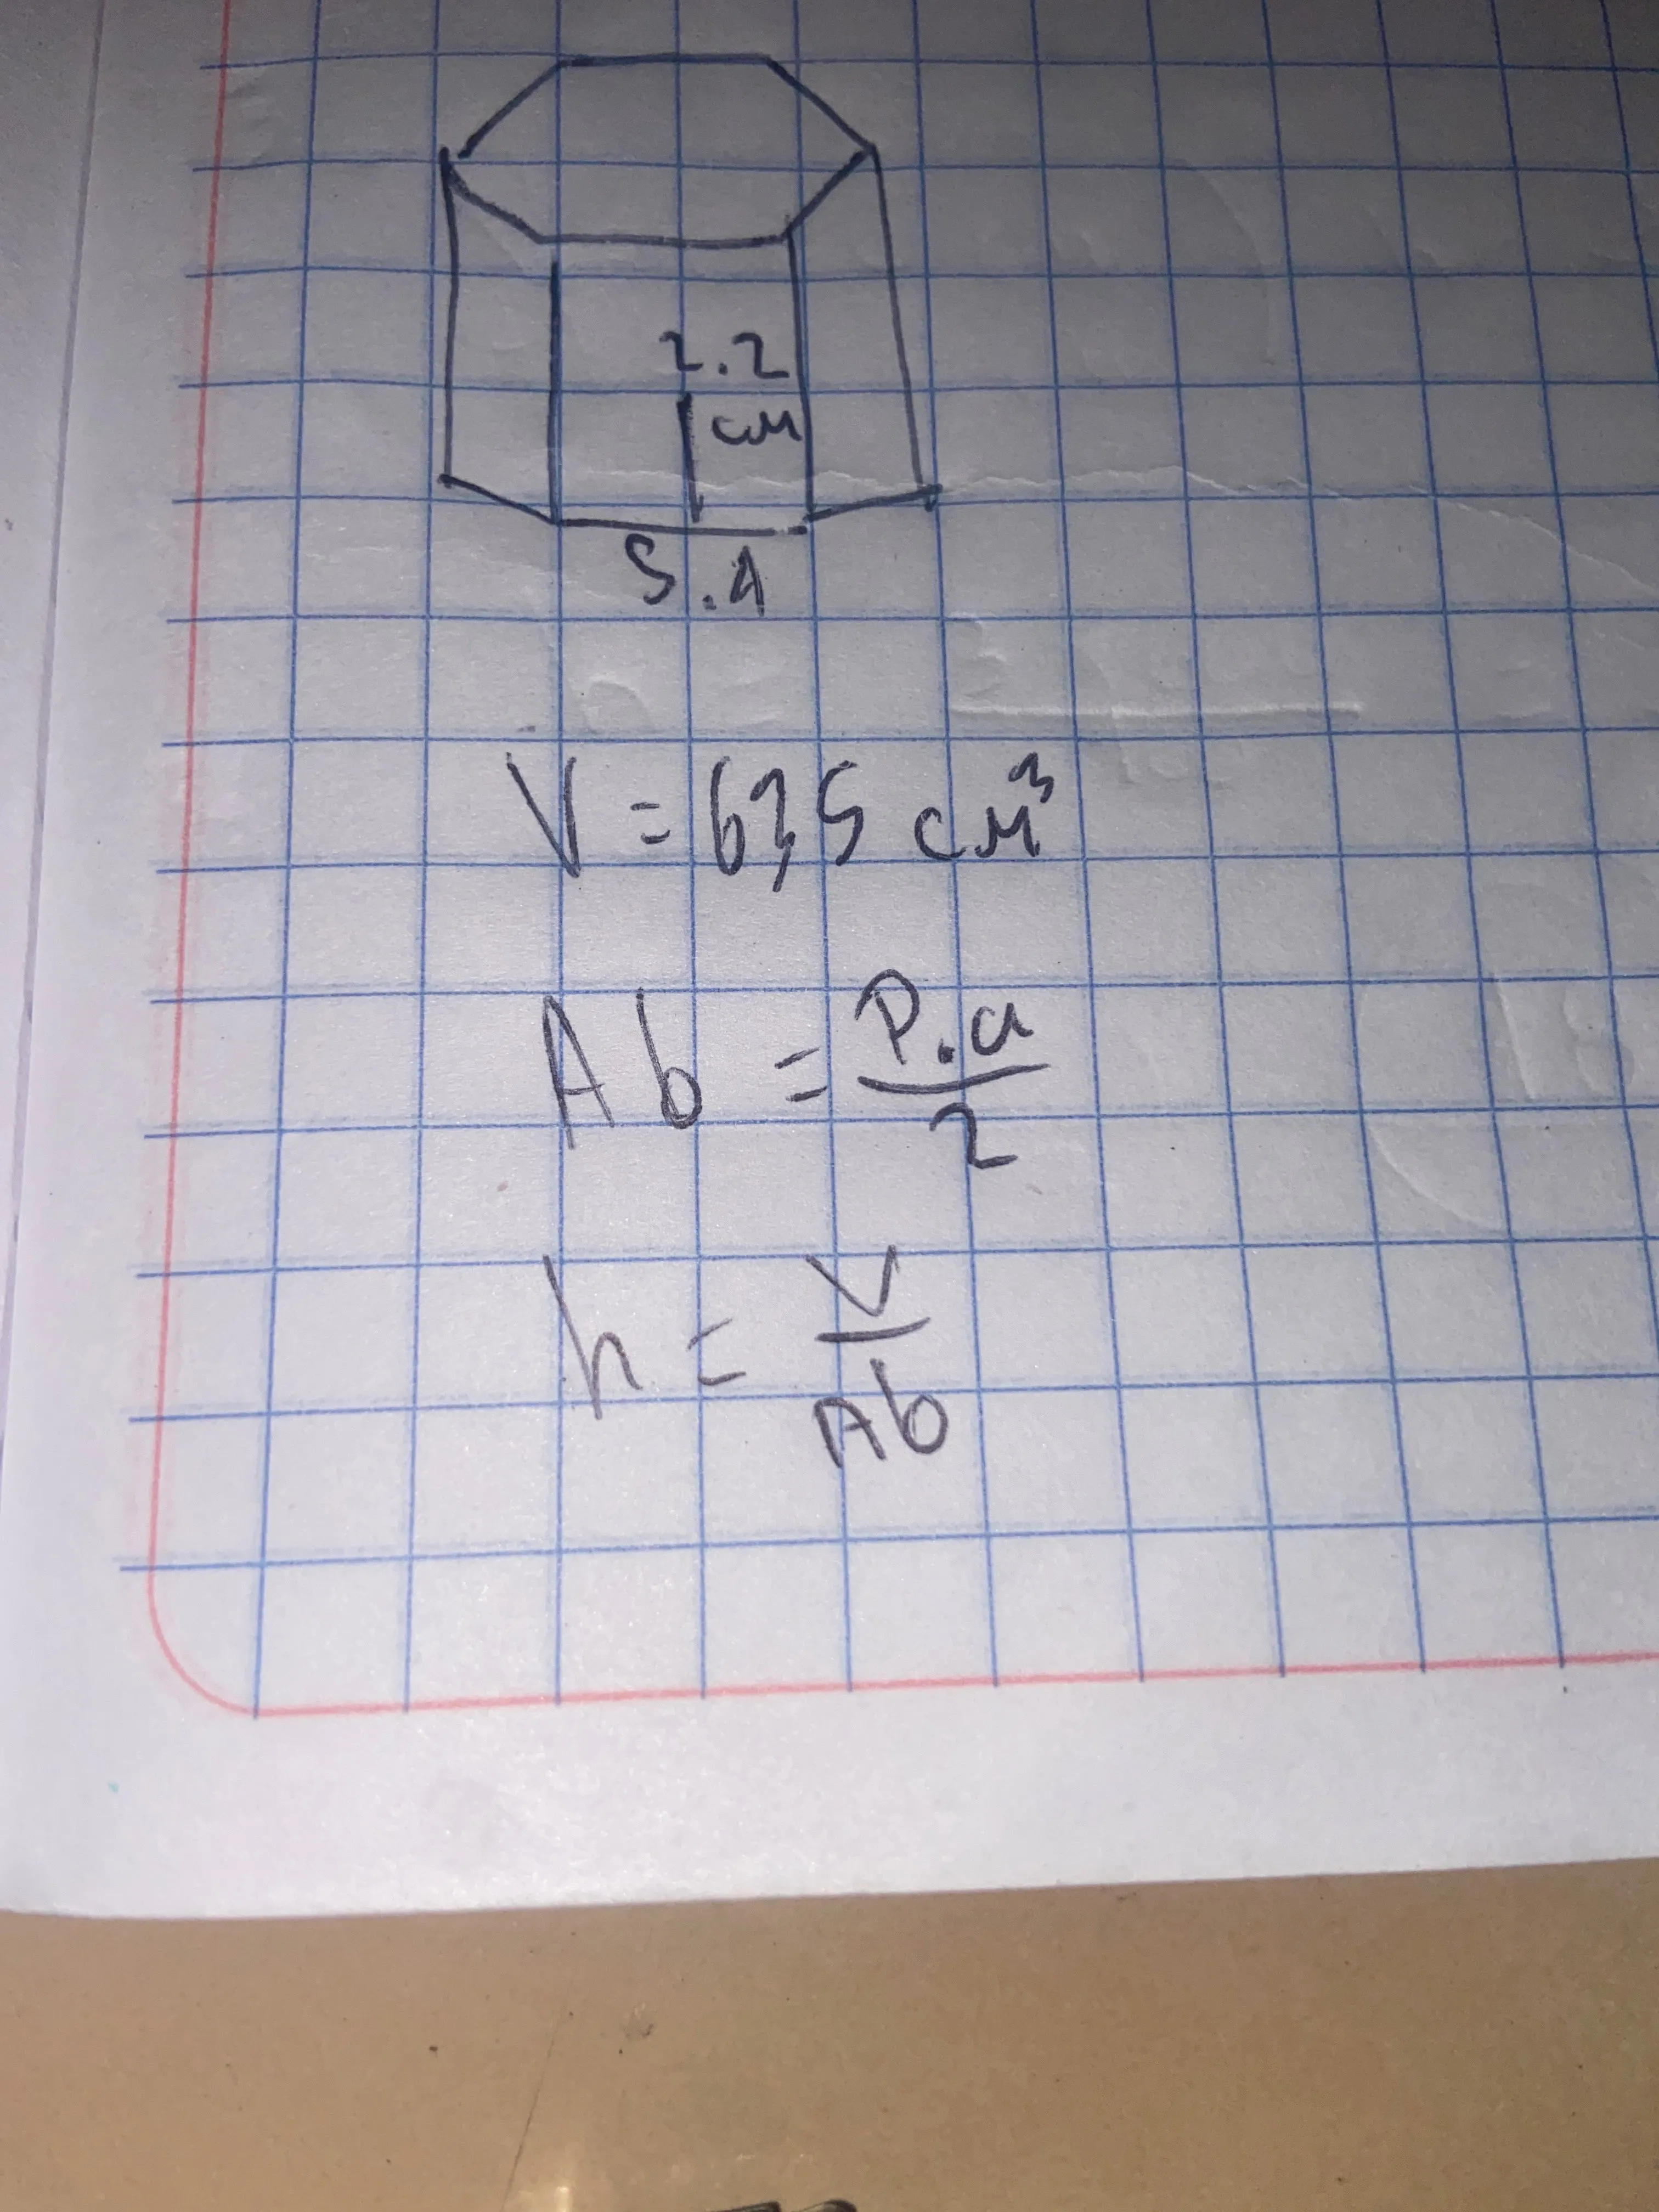 2.2
cm
5.1
V = 635 cm³
Ab = P.a/2
h = V/Ab